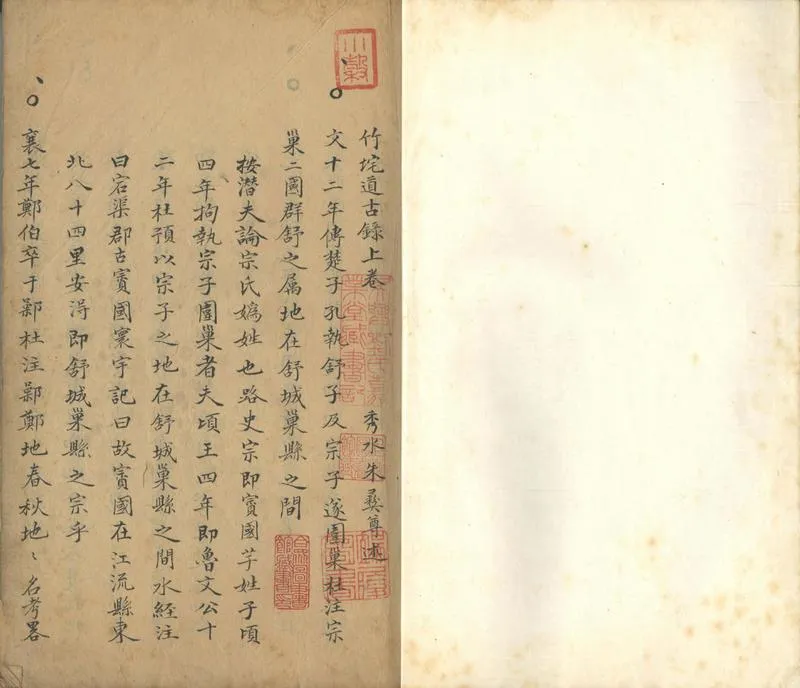 竹垞道古錄上卷 秀水朱彞尊述
文十二年傳楚子孔執舒子及宗子遂圍巢杜注宗
巢二國群舒之属地在舒城巢縣之間
按潛夫論宗氏嬀姓也路史宗即賨國芈姓子頃
四年拘執宗子圍巢者夫頃王四年即魯文公十
二年杜預以宗子之地在舒城巢縣之間水経注
曰宕渠郡古賨國寰宇記曰故賨國在江流縣東
北八十四里安得即舒城巢縣之宗乎
襄七年鄭伯卒于鄵杜注鄵鄭地春秋地〻名考畧